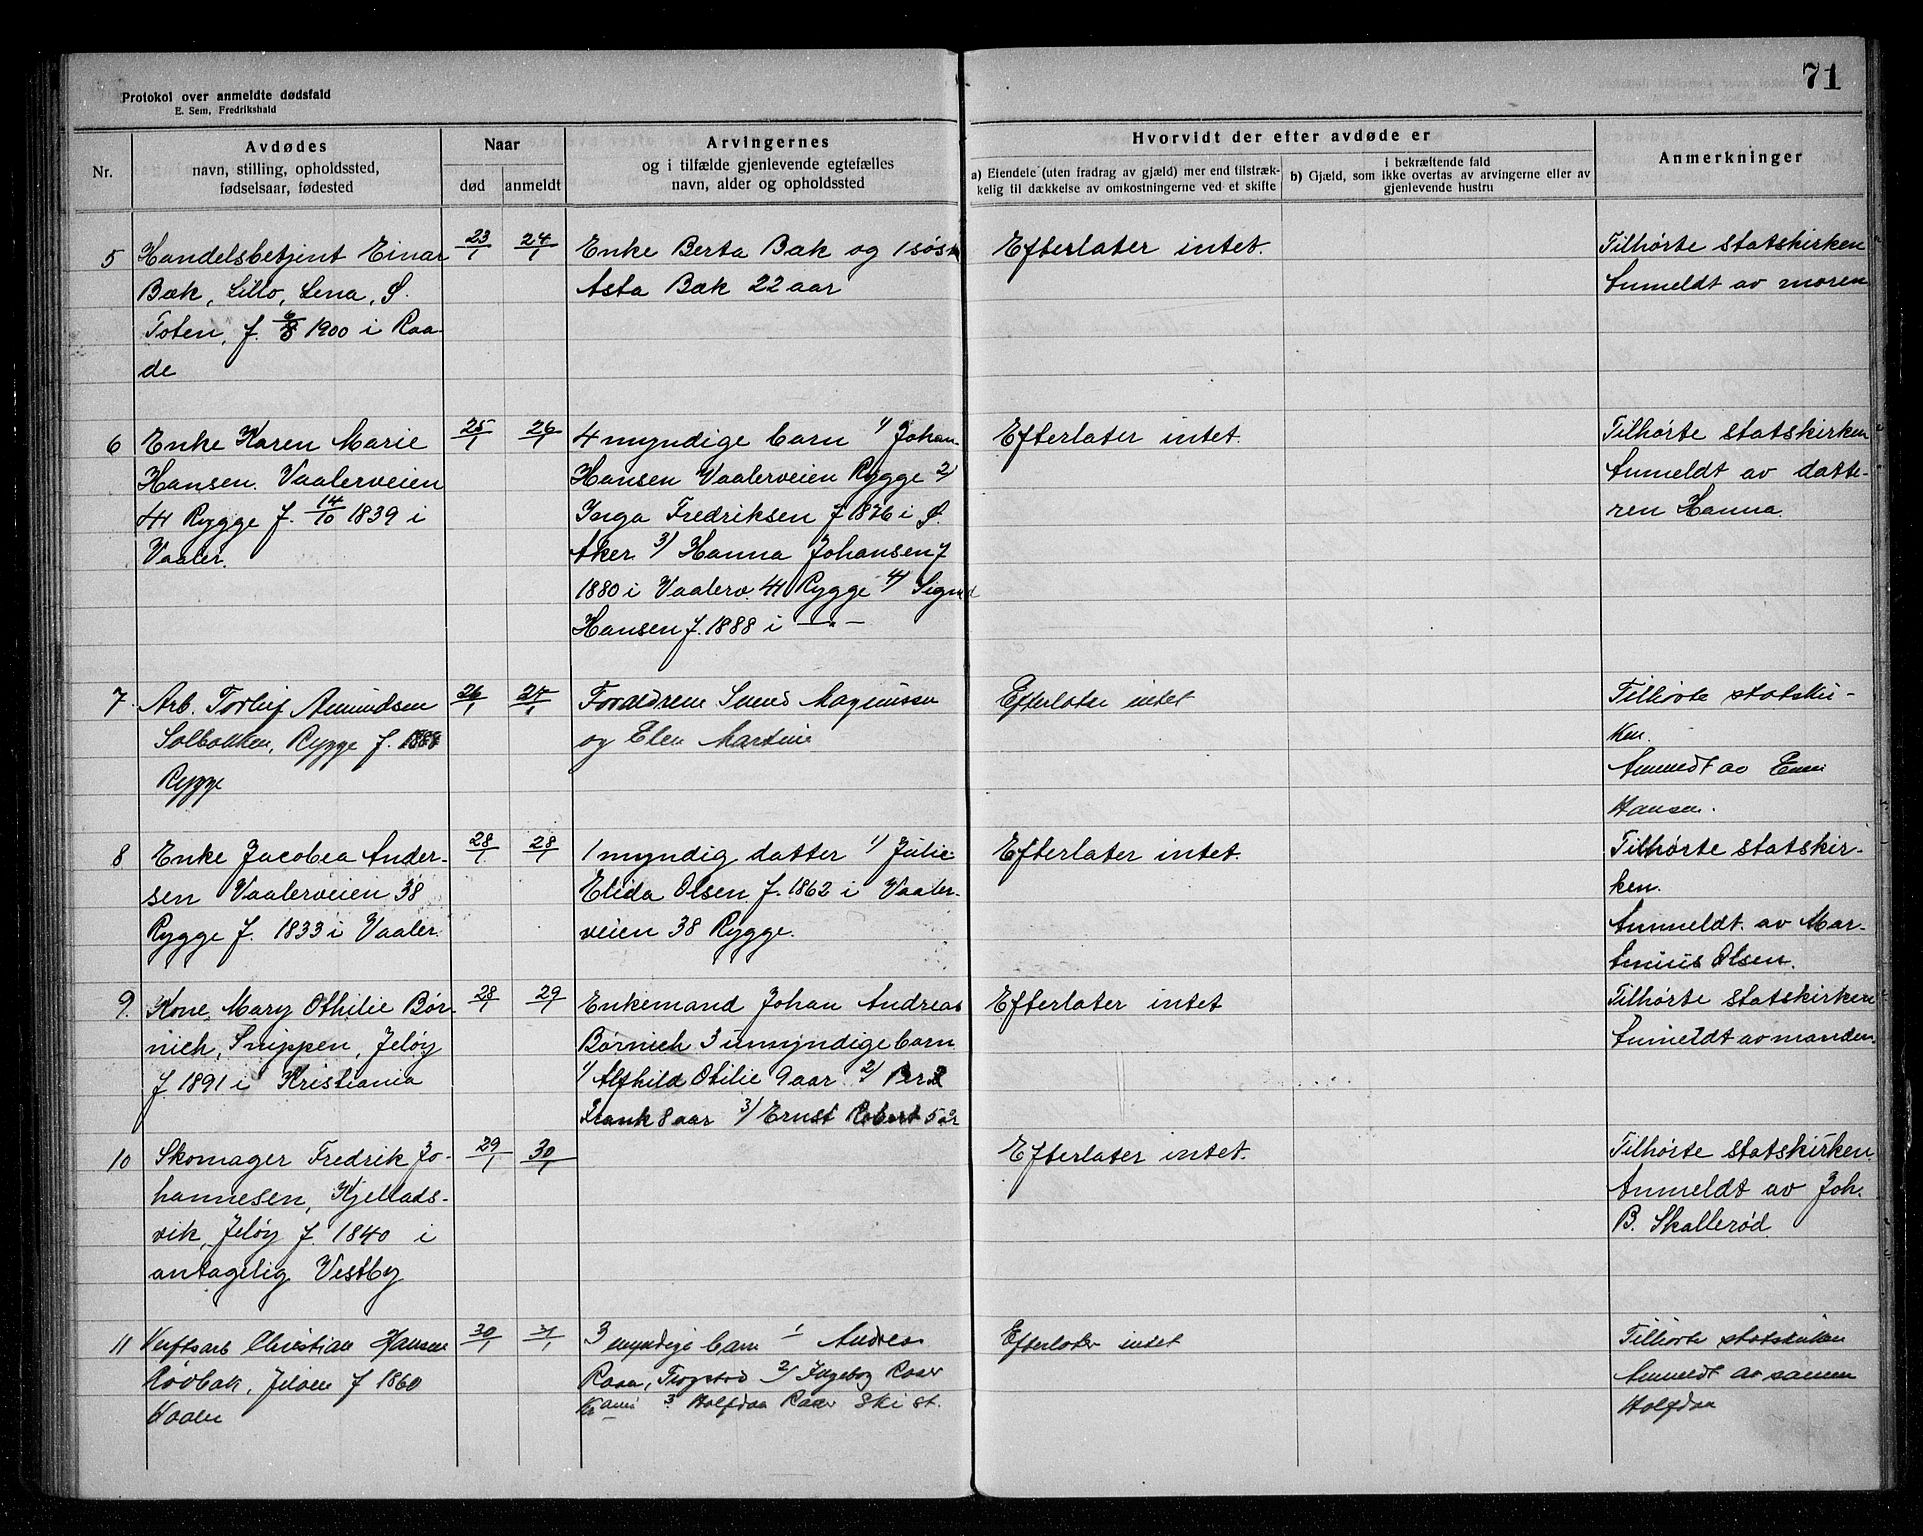 71
Protokol over anmeldte dødsfald
E. Sem, Fredrikshald
Nr.
Avdødes
navn, stilling, opholdssted,
fødselsaar, fødested
Naar
død
anmeldt
Arvingernes
og i tilfælde gjenlevende egtefælles
navn, alder og opholdssted
Hvorvidt der efter avdøde er
a) Eiendele (uten fradrag av gjæld) mer end tilstræk-
kelig til dækkelse av omkostningerne ved et skifte
i bekræftende fald
b) Gjæld, som ikke overtas av arvingerne eller av
gjenlevende hustru
Anmerkninger
5
Handelsbetjent Einar
Bæk, Lillo, Lena, Ø.
Toten, f. 6/8 1900 i Raa-
de
23/1
24/1
Enke Berta Bæk og 1 søst
Asta Bæk 22 aar
Efterlater intet.
Tilhørte statskirken
Anmeldt av moren
6
Enke Karen Marie
Hansen. Vaalerveien
41 Rygge f. 14/10 1839 i
Vaaler.
25/1
26/1
4 myndige barn 1/ Johan
Hansen Vaalerveien Rygge 2/
Inga Fredriksen f 1876 i Ø.
Aker 3/ Hanna Johansen f
1880 i Vaalerv. 41 Rygge 4/ Signe
Hansen f. 1888 i —"—
Efterlater intet.
Tilhørte statskirken
Anmeldt av datte-
ren Hanna.
7.
Arb. Torleif Amundsen
Solbakken, Rygge f. 1888
Rygge
26/1
27/1
Forældrene Svend Magnussen
og Elen Martine
Efterlater intet
Tilhørte statskir-
ken.
Anmeldt av
Hansen.
8
Enke Jacobea Ander-
sen Vaalerveien 38
Rygge f. 1833 i Vaaler.
28/1
28/1
1 myndig datter 1/ Julie
Elida Olsen f. 1862 i Vaaler-
veien 38 Rygge.
Efterlater intet.
Tilhørte statskir-
ken.
Anmeldt av Mar-
tinius Olsen.
9.
Kone Mary Othilie Bør-
nich, Snippen, Jeløy
f. 1891 i Kristiania
28/1
29/1
Enkemand Johan Andreas
Børnich 3 umyndige barn
1/ Alfhild Otilie 9 aar 2/
Frank 8 aar 3/ Ernst Robert 5 aar
Efterlater intet
Tilhørte statskirken
Anmeldt av manden.
10
Skomager Fredrik Jo-
hannesen, Kjellads-
vik, Jeløy f. 1840 i
antagelig Vestby
29/1
30/1
Efterlater intet.
Tilhørte statskirken.
Anmeldt av Joh.
B. Skallerød.
11
Verftsarb Christian Hansen
Rødbak, Jeløen f 1860
Vaaler
30/1
31/1
3 myndige barn 1 Andrea
Raaen, Trøgstad 2/ Ingeborg Raaer
3 Halfdan Raaer Ski st.
Efterlater intet
Tilhørte statskirken
Anmeldt av sønnen
Halfdan